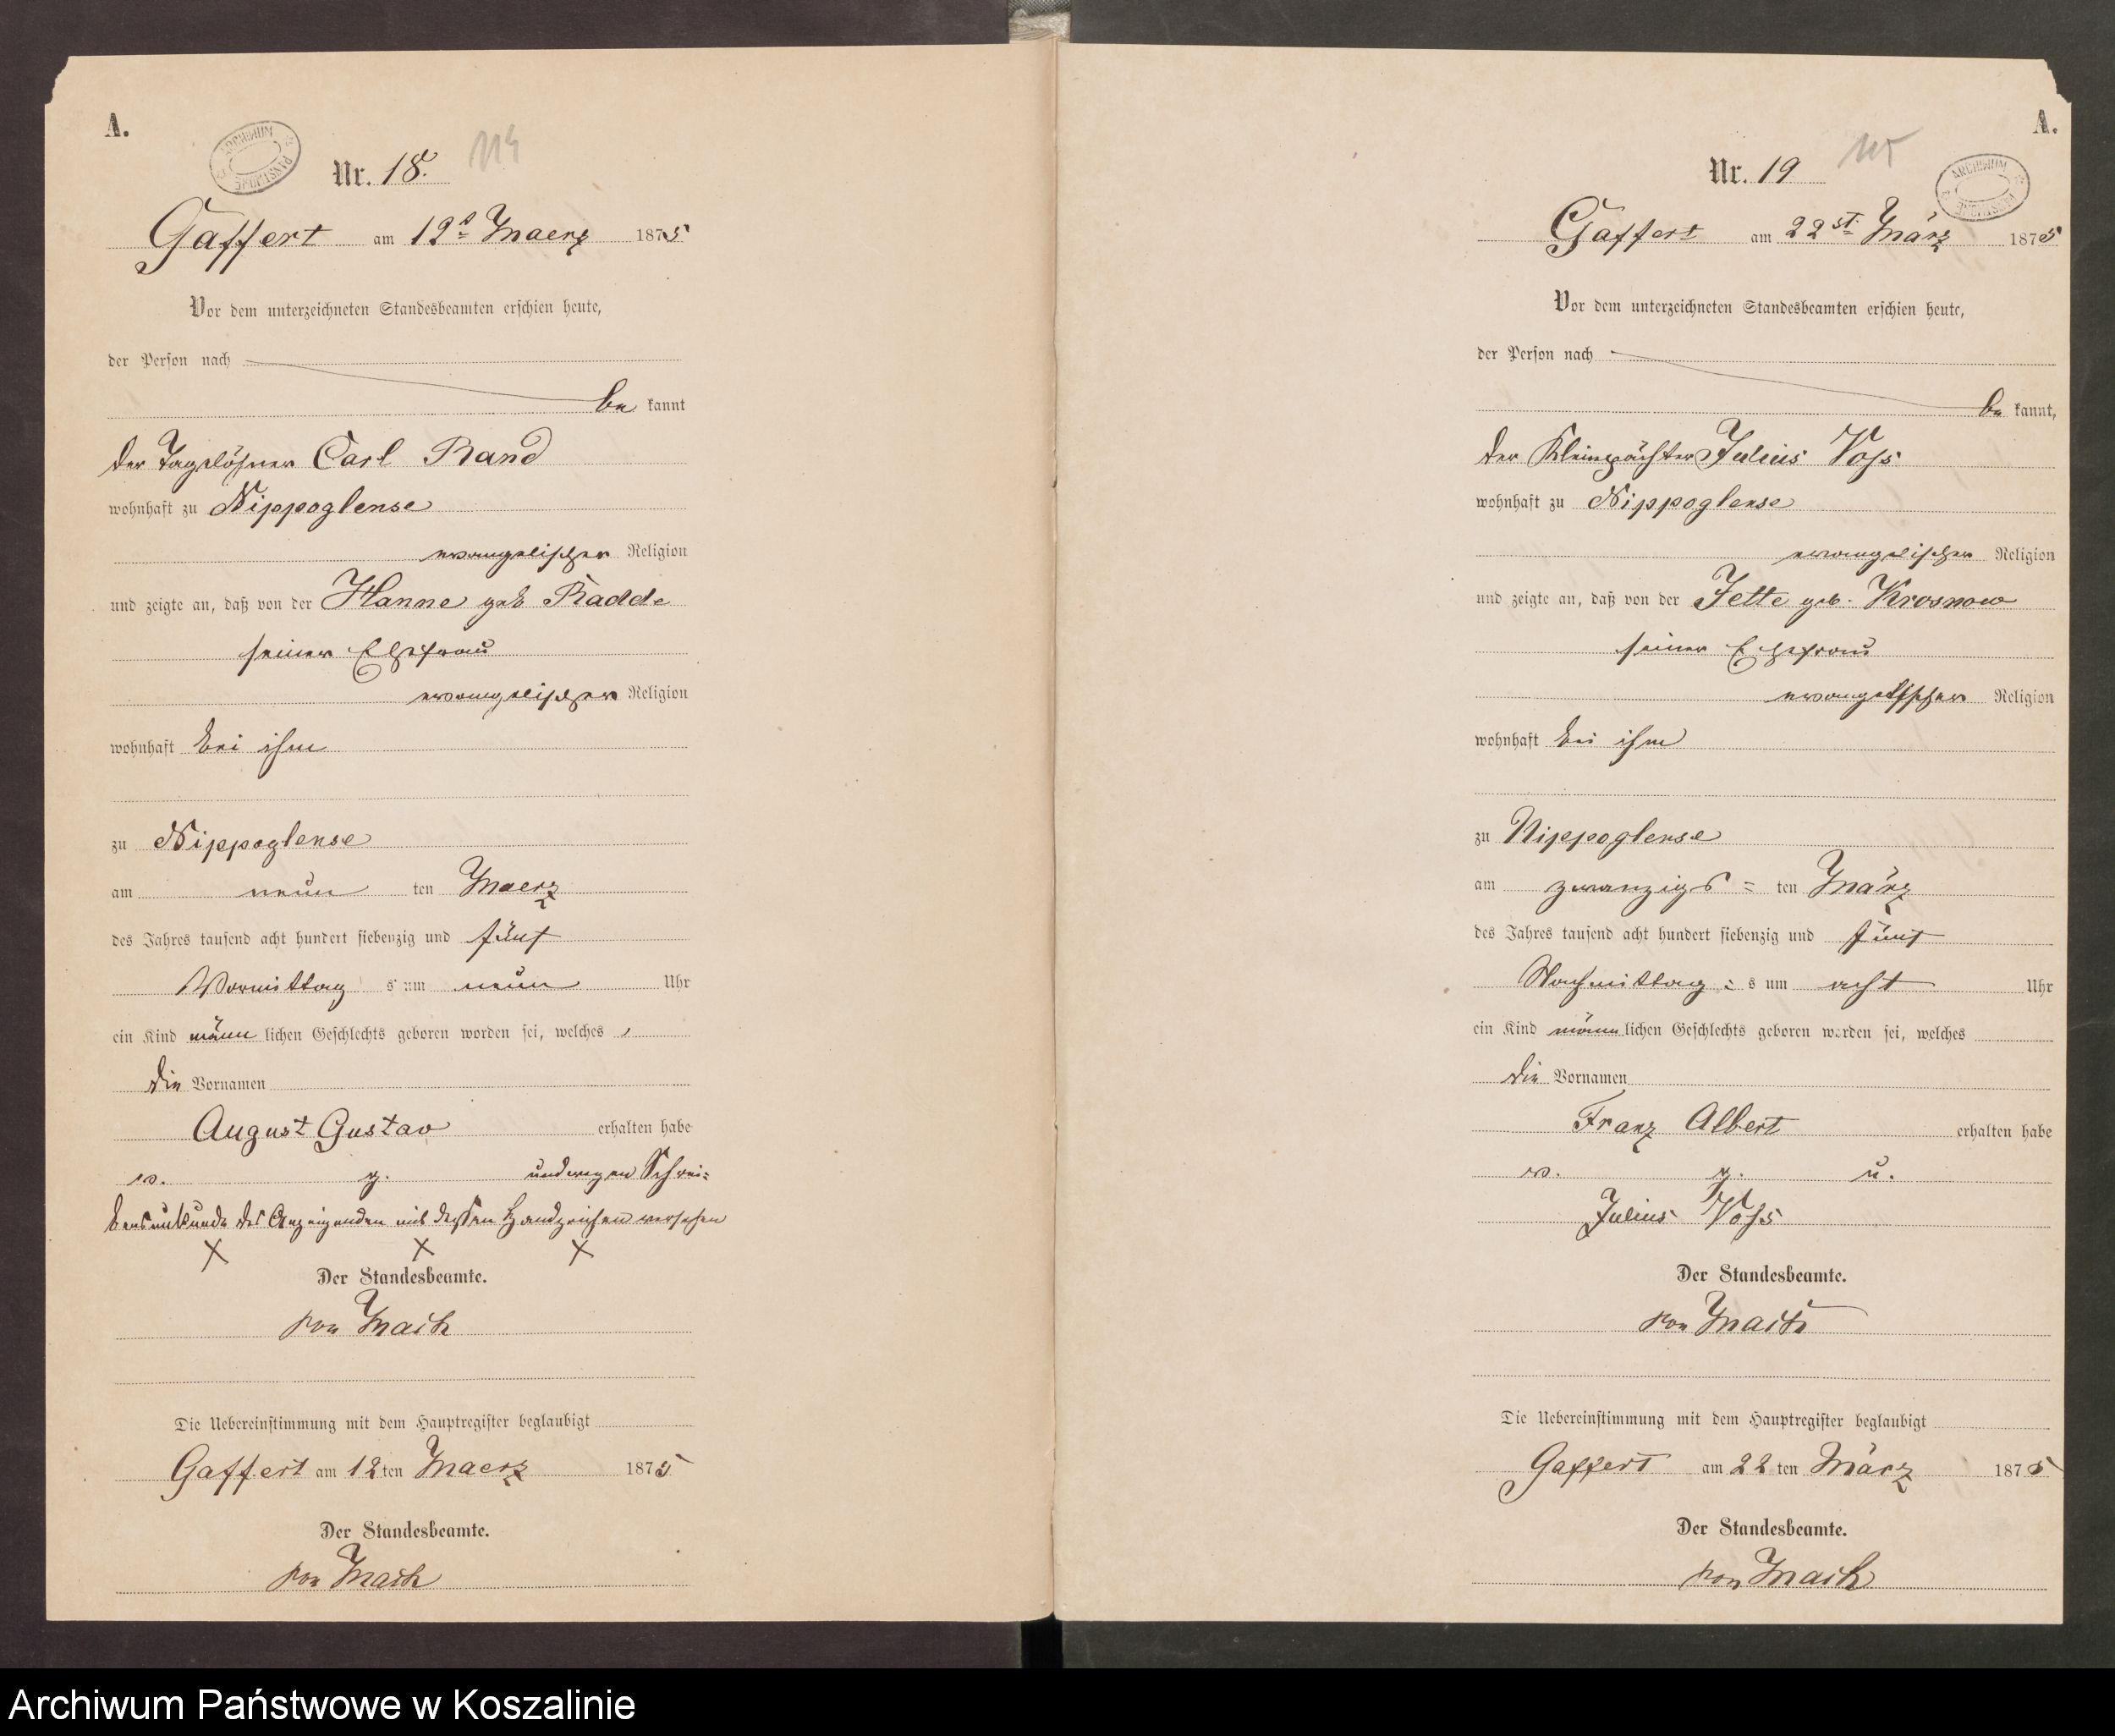 A.
ARCHIWUM PAŃSTWOWE
Nr. 18.
114
Gaffert am 12t Maerz 1875
Vor dem unterzeichneten Standesbeamten erschien heute,
der Person nach
be kannt
der Tagelöhner Carl Rand
wohnhaft zu Nippoglense
evangelischer Religion
und zeigte an, daß von der Hanne geb Radde
seiner Ehefrau
evangelischer Religion
wohnhaft bei ihm
zu Nippoglense
am neun ten Maerz
des Jahres tausend acht hundert siebenzig und fünf
Vormittag s um neun Uhr
ein Kind männ lichen Geschlechts geboren worden sei, welches
die Vornamen
August Gustav erhalten habe
v. g. und wegen Schrei-
bensunkunde des Anzeigenden mit dessen Handzeichen versehen
X X X
Der Standesbeamte.
von Mach
Die Uebereinstimmung mit dem Hauptregister beglaubigt
Gaffert am 12 ten Maerz 1875
Der Standesbeamte.
von Mach
A.
Nr. 19
115
ARCHIWUM PAŃSTWOWE
Gaffert am 22st. März 1875
Vor dem unterzeichneten Standesbeamten erschien heute,
der Person nach
be kannt,
der Kleinpächter Julius Voss
wohnhaft zu Nippoglense
evangelischer Religion
und zeigte an, daß von der Jette geb. Krosnow
seiner Ehefrau
evangelischer Religion
wohnhaft bei ihm
zu Nippoglense
am zwanzigs = ten März
des Jahres tausend acht hundert siebenzig und fünf
Nachmittag = s um acht Uhr
ein Kind männ lichen Geschlechts geboren worden sei, welches
die Vornamen
Franz Albert erhalten habe
v. g. u.
Julius Voss
Der Standesbeamte.
von Mach
Die Uebereinstimmung mit dem Hauptregister beglaubigt
Gaffert am 22 ten März 1875
Der Standesbeamte.
von Mach
Archiwum Państwowe w Koszalinie